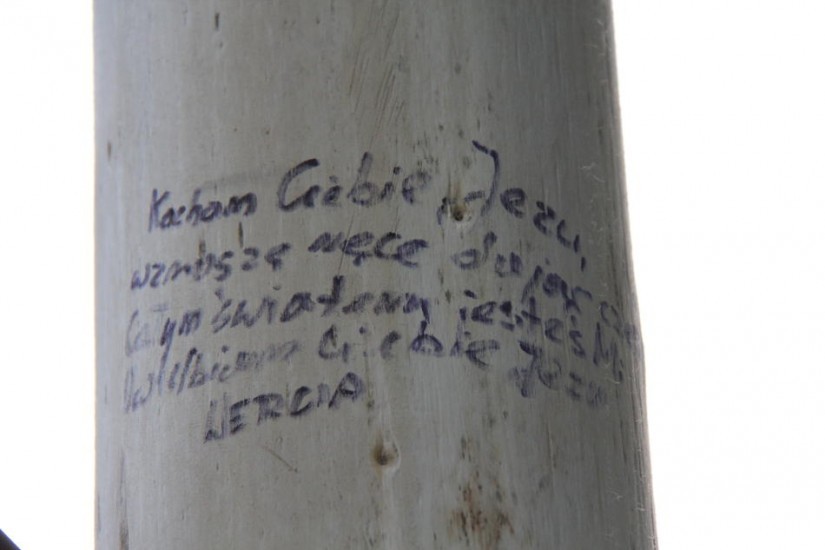 Kocham Ciebie Jezu,
wznoszę ręce dając Ci
Całym światem jesteś Mi
Uwielbiam Ciebie Jezu
WERCIA